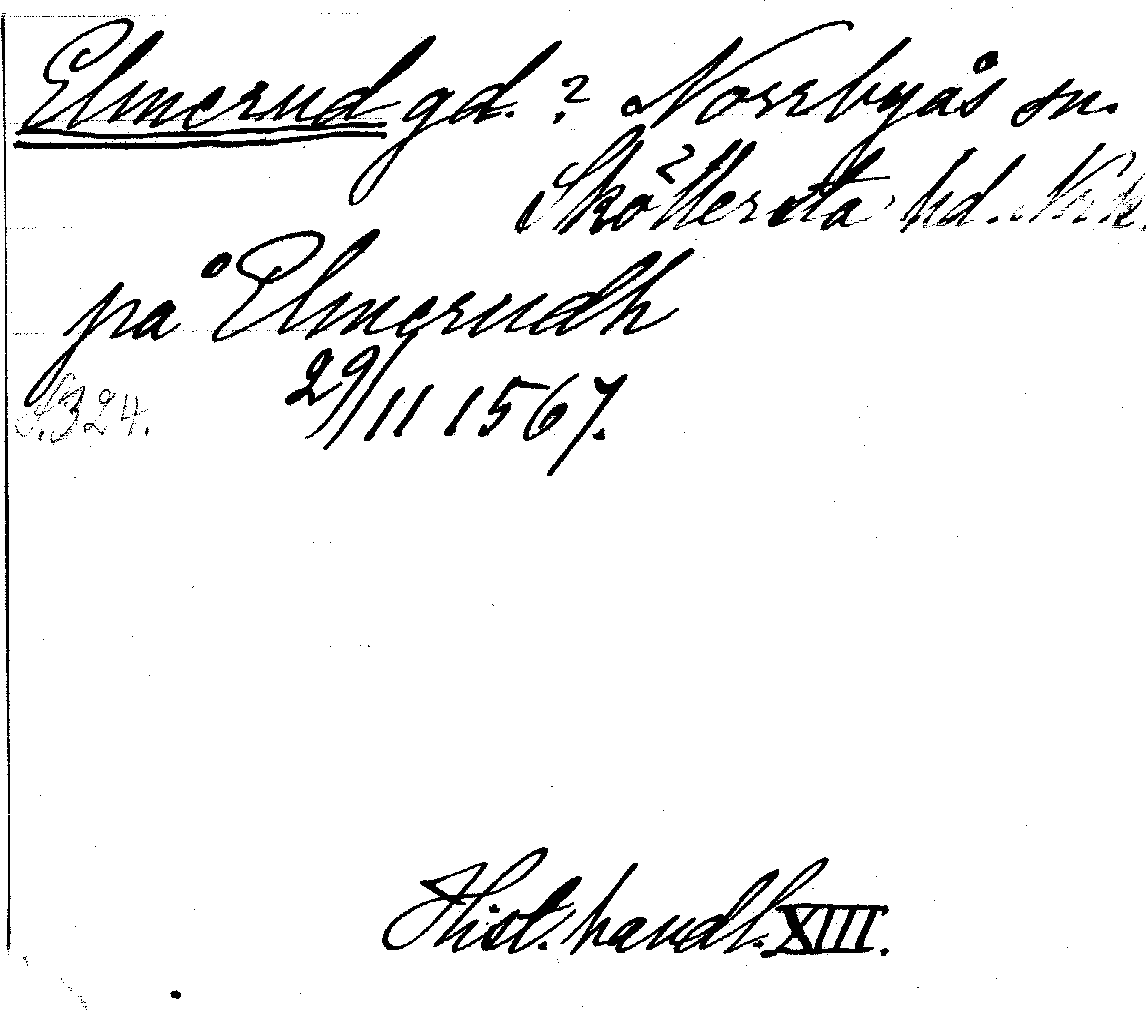 Elmerud gd. ? Norrbyås sn.
Sköllersta hd. Nrk.
på Elmerudh
S. 324. 29/11 1567.
Hist. handl. XIII.